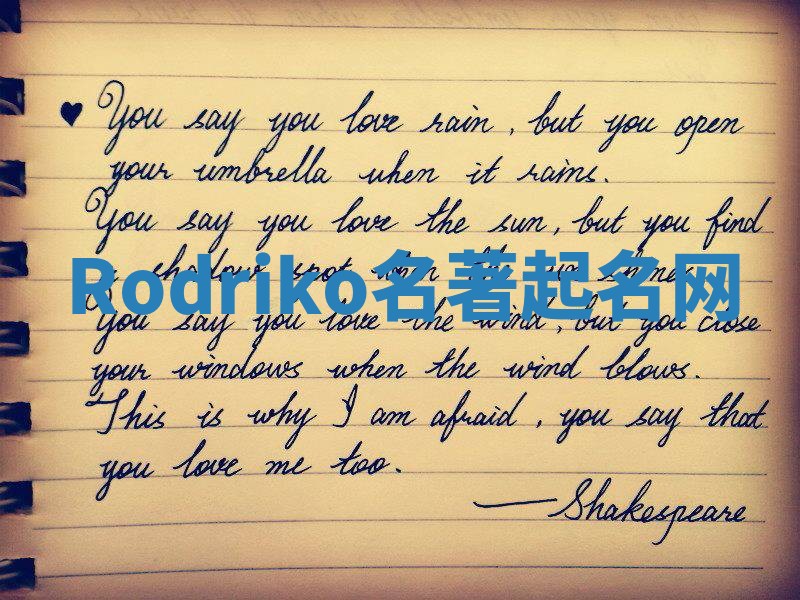 ♥ You say you love rain, but you open
your umbrella when it rains.
You say you love the sun, but you find
a shadow spot when the sun shines.
Rodriko名著起名网
You say you love the wind, but you close
your windows when the wind blows.
This is why I am afraid, you say that
you love me too.
—Shakespeare